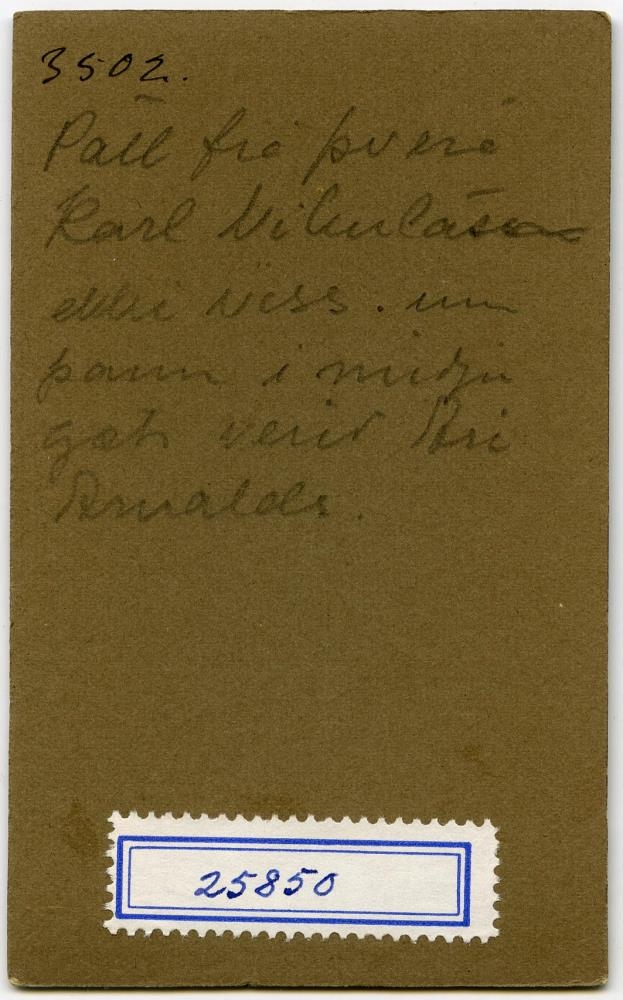 3502.
Páll frá Þverá
Karl Nikulásson
ekki viss. um
þann í miðju
gæti verið Ari
Arnalds.
25850